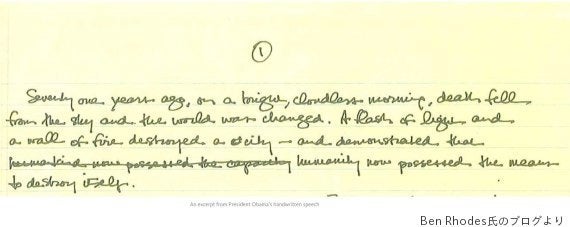 1
Seventy one years ago, on a bright, cloudless morning, death fell
from the sky and the world was changed. A flash of light and
a wall of fire destroyed a city – and demonstrated that
humankind now possessed the capacity humanity now possessed the means
to destroy itself.
An excerpt from President Obama's handwritten speech
Ben Rhodes氏のブログより